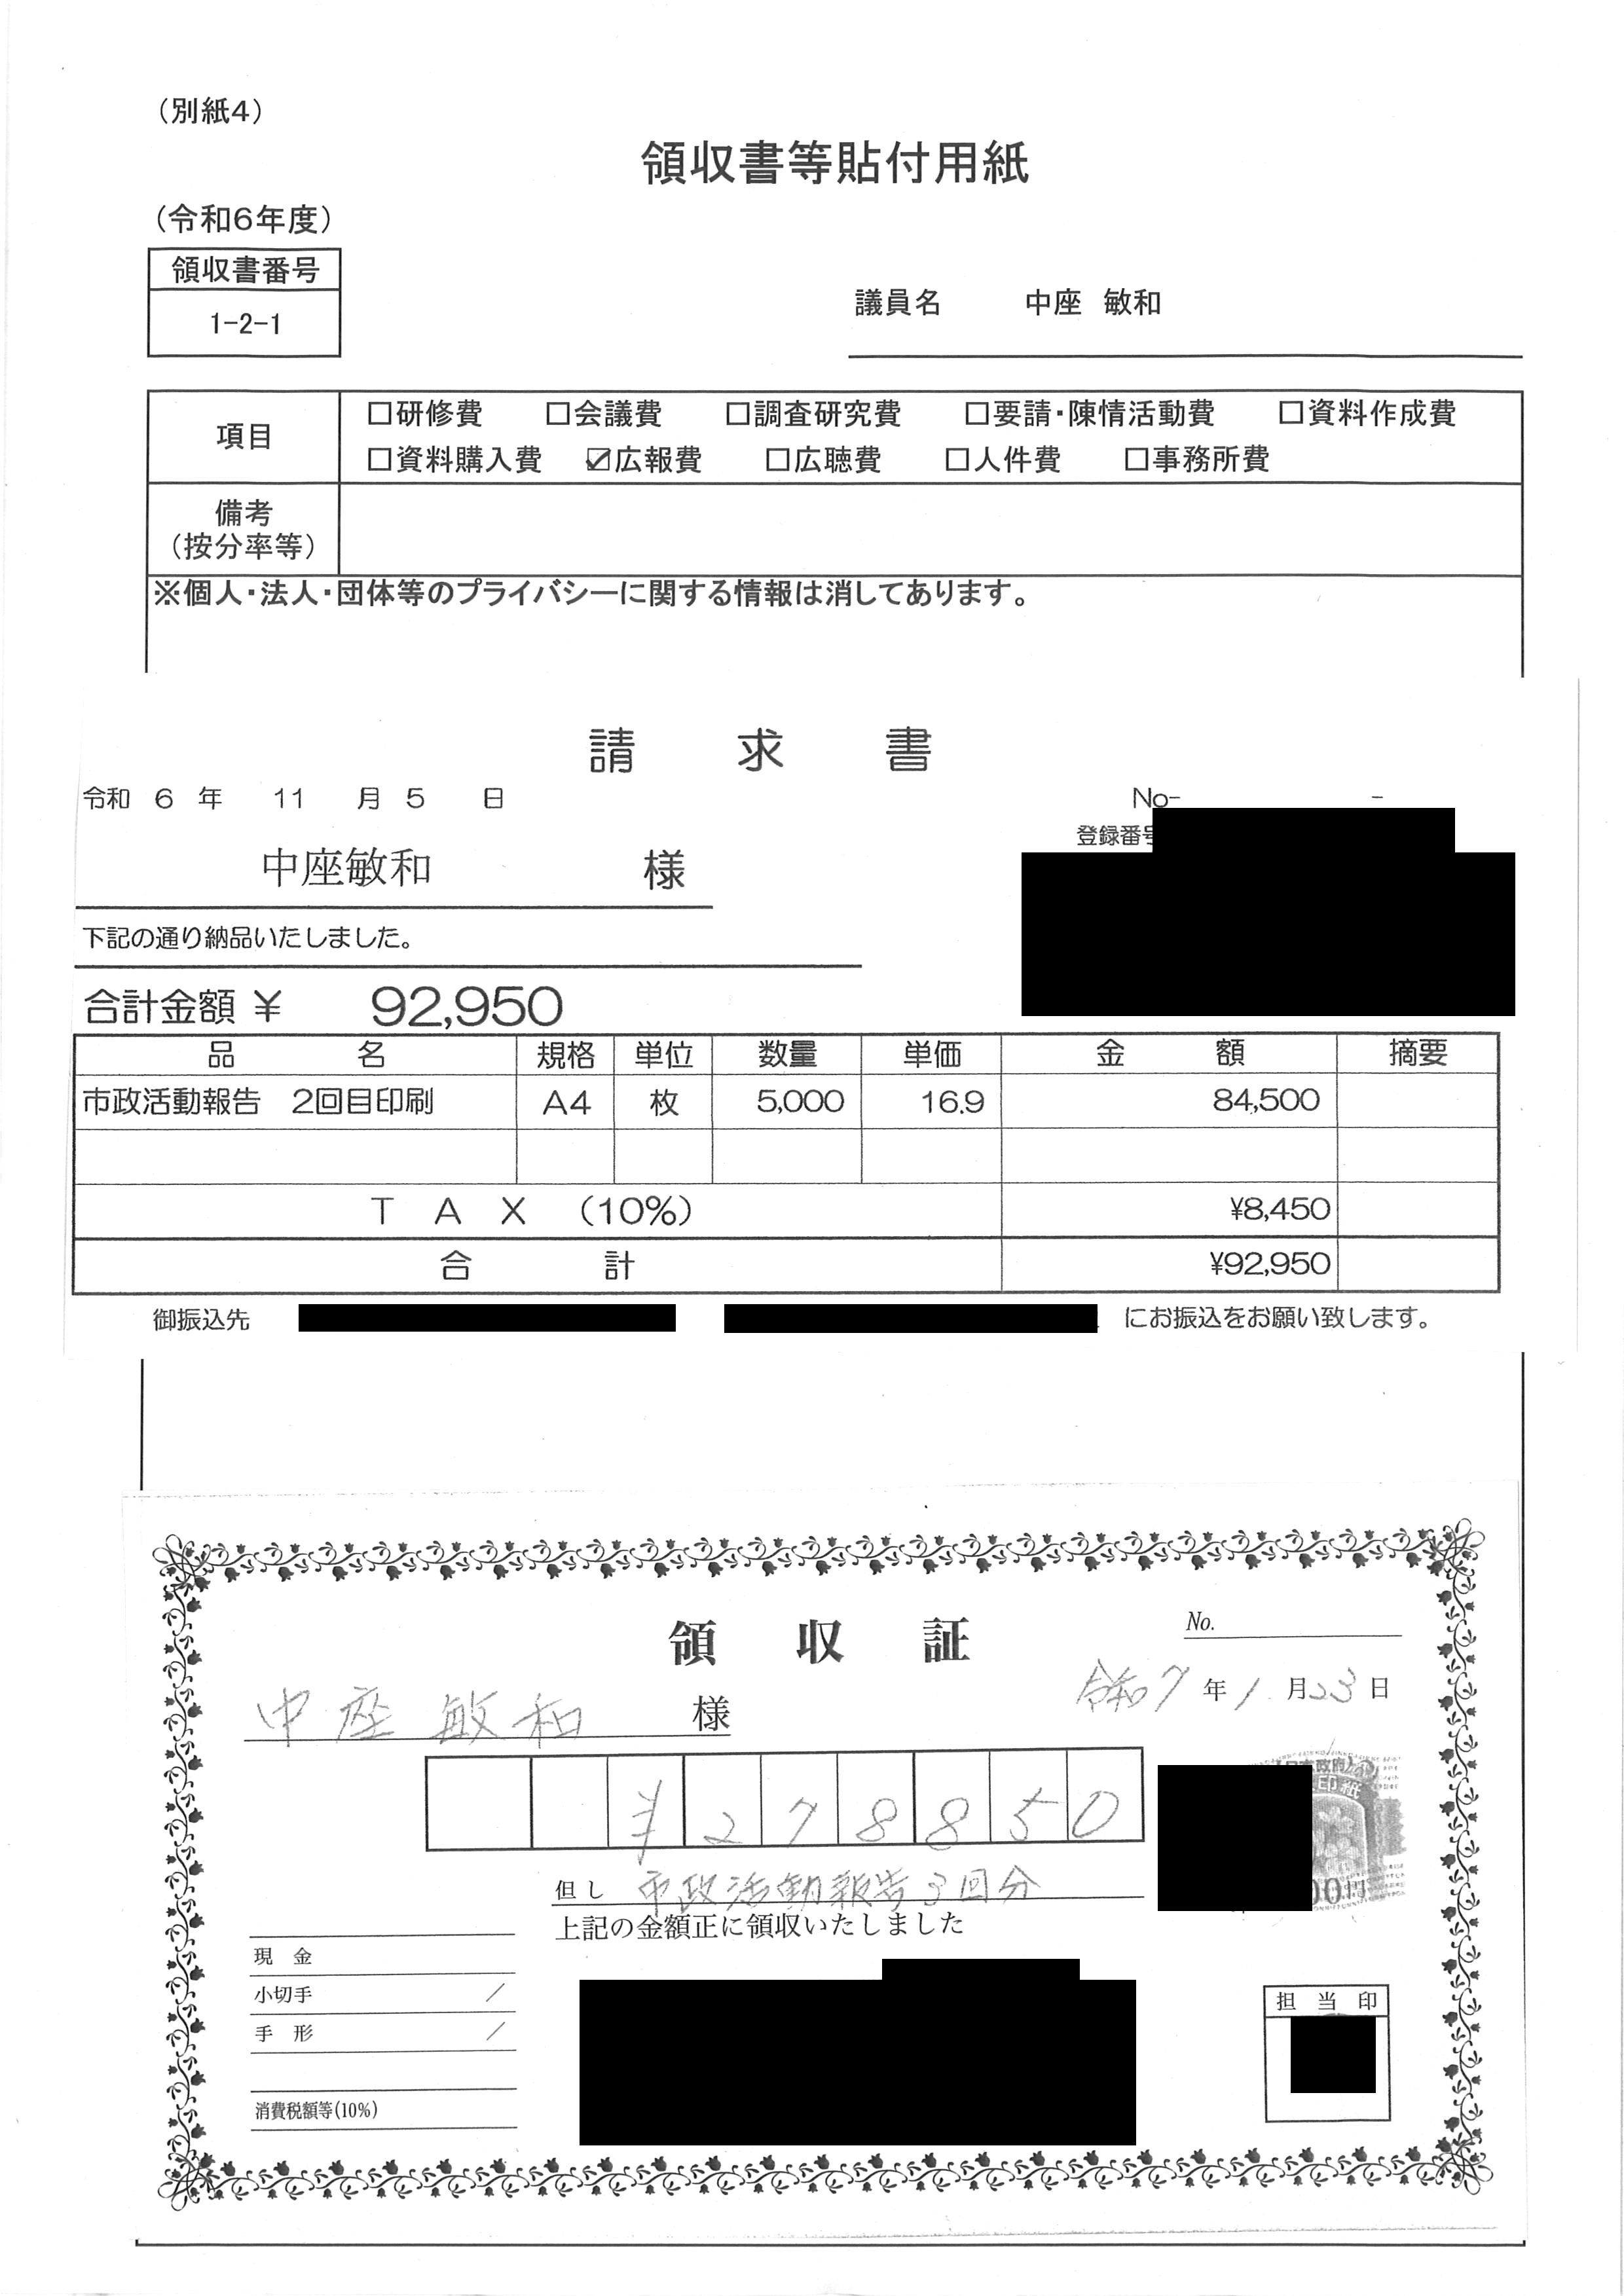 （別紙４）
領収書等貼付用紙
（令和６年度）
領収書番号
1-2-1
議員名　中座　敏和
項目
□研修費　□会議費　□調査研究費　□要請・陳情活動費　□資料作成費
□資料購入費　☑広報費　□広聴費　□人件費　□事務所費
備考
（按分率等）
※個人・法人・団体等のプライバシーに関する情報は消してあります。
請求書
令和 6 年 11 月 5 日
No-　-
登録番号
中座敏和　様
下記の通り納品いたしました。
合計金額 ¥ 92,950
品名　規格　単位　数量　単価　金額　摘要
市政活動報告　2回目印刷　A4　枚　5,000　16.9　84,500
TAX （10%）　¥8,450
合計　¥92,950
御振込先　にお振込をお願い致します。
領収証
No.
令和7年1月23日
中座敏和　様
¥278850
但し　市政活動報告3回分
上記の金額正に領収いたしました
現金
小切手　／
手形　／
消費税額等(10%)
担当印